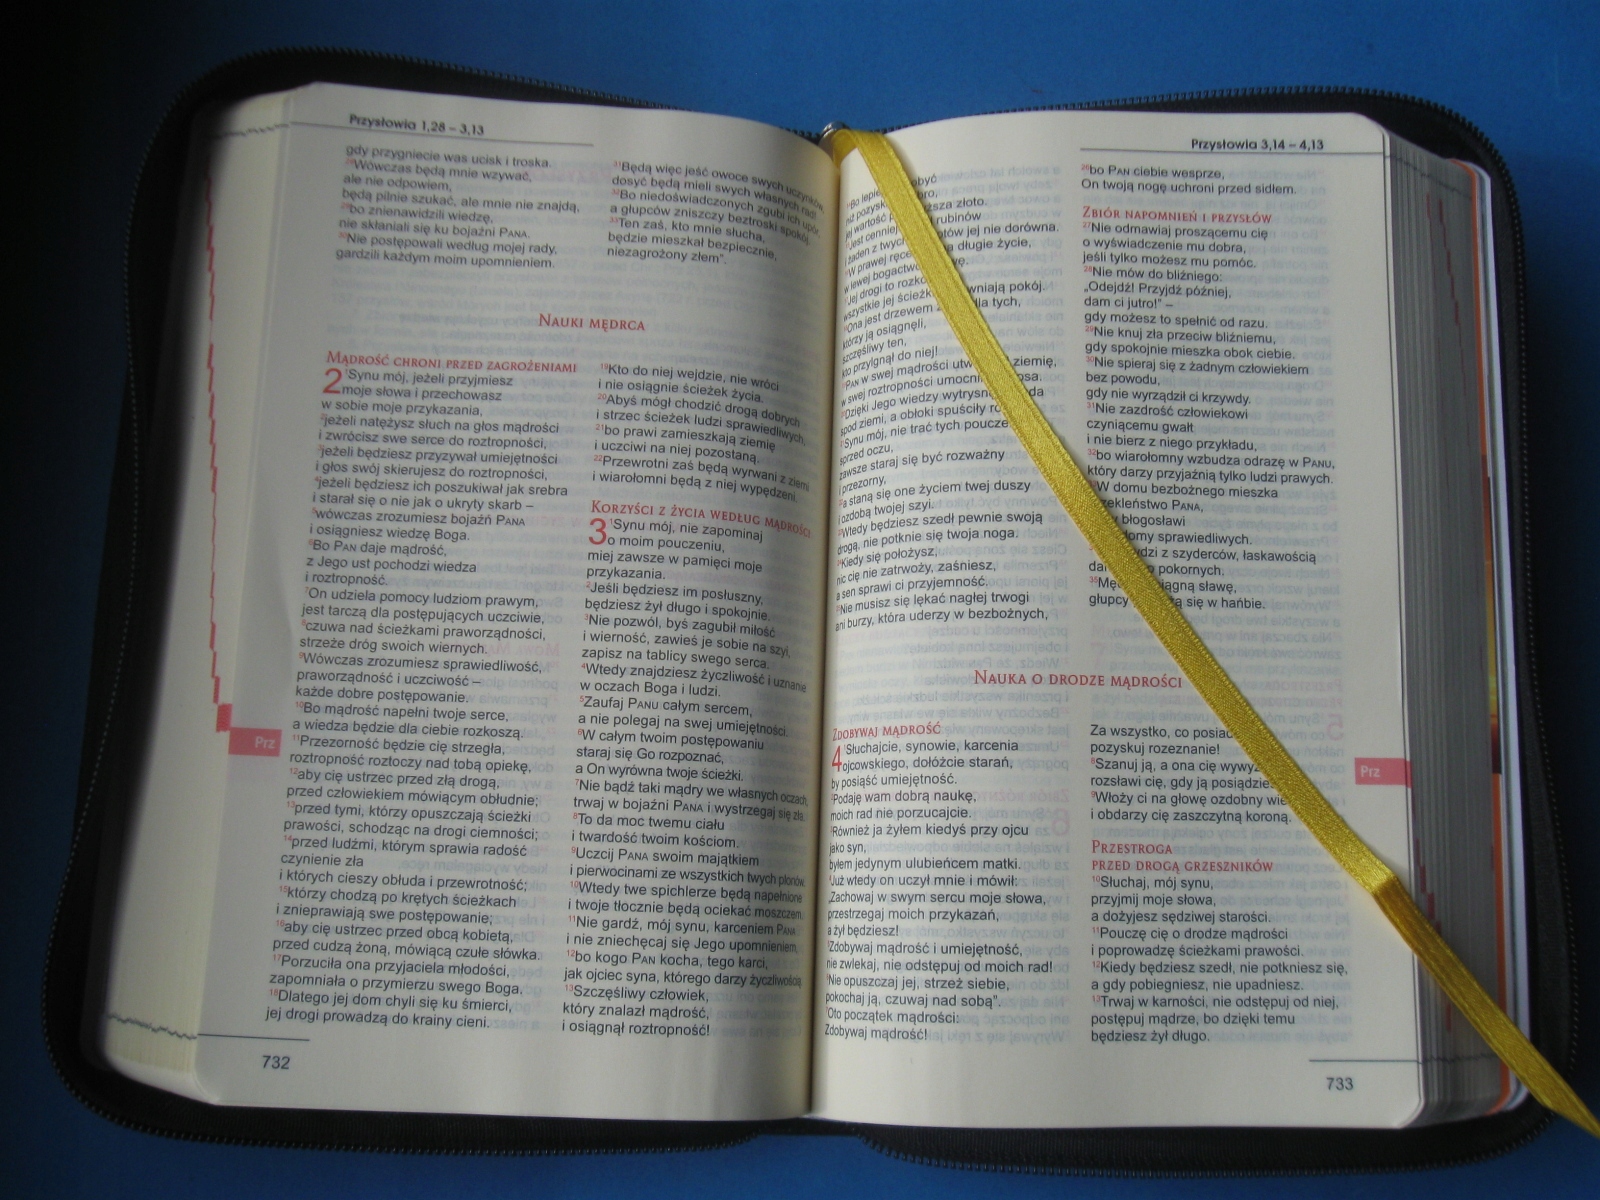 Przysłowia 1,28 – 3,13
gdy przygniecie was ucisk i troska.
²⁸Wówczas będą mnie wzywać,
ale nie odpowiem,
będą pilnie szukać, ale mnie nie znajdą,
²⁹bo znienawidzili wiedzę,
nie skłaniali się ku bojaźni PANA.
³⁰Nie postępowali według mojej rady,
gardzili każdym moim upomnieniem.
³¹Będą więc jeść owoce swych uczynków,
dosyć będą mieli swych własnych rad!
³²Bo niedoświadczonych zgubi ich upór,
a głupców zniszczy beztroski spokój.
³³Ten zaś, kto mnie słucha,
będzie mieszkał bezpiecznie,
niezagrożony złem”.
NAUKI MĘDRCA
MĄDROŚĆ CHRONI PRZED ZAGROŻENIAMI
2 ¹Synu mój, jeżeli przyjmiesz
moje słowa i przechowasz
w sobie moje przykazania,
²jeżeli natężysz słuch na głos mądrości
i zwrócisz swe serce do roztropności,
³jeżeli będziesz przyzywał umiejętności
i głos swój skierujesz do roztropności,
⁴jeżeli będziesz ich poszukiwał jak srebra
i starał się o nie jak o ukryty skarb –
⁵wówczas zrozumiesz bojaźń PANA
i osiągniesz wiedzę Boga.
⁶Bo PAN daje mądrość,
z Jego ust pochodzi wiedza
i roztropność.
⁷On udziela pomocy ludziom prawym,
jest tarczą dla postępujących uczciwie,
⁸czuwa nad ścieżkami praworządności,
strzeże dróg swoich wiernych.
⁹Wówczas zrozumiesz sprawiedliwość,
praworządność i uczciwość –
każde dobre postępowanie.
¹⁰Bo mądrość napełni twoje serce,
a wiedza będzie dla ciebie rozkoszą.
¹¹Przezorność będzie cię strzegła,
roztropność roztoczy nad tobą opiekę,
¹²aby cię ustrzec przed złą drogą,
przed człowiekiem mówiącym obłudnie;
¹³przed tymi, którzy opuszczają ścieżki
prawości, schodząc na drogi ciemności;
¹⁴przed ludźmi, którym sprawia radość
czynienie zła
i których cieszy obłuda i przewrotność;
¹⁵którzy chodzą po krętych ścieżkach
i znieprawiają swe postępowanie;
¹⁶aby cię ustrzec przed obcą kobietą,
przed cudzą żoną, mówiącą czułe słówka.
¹⁷Porzuciła ona przyjaciela młodości,
zapomniała o przymierzu swego Boga,
¹⁸Dlatego jej dom chyli się ku śmierci,
jej drogi prowadzą do krainy cieni.
¹⁹Kto do niej wejdzie, nie wróci
i nie osiągnie ścieżek życia.
²⁰Abyś mógł chodzić drogą dobrych
i strzec ścieżek ludzi sprawiedliwych,
²¹bo prawi zamieszkają ziemię
i uczciwi na niej pozostaną.
²²Przewrotni zaś będą wyrwani z ziemi
i wiarołomni będą z niej wypędzeni.
KORZYŚCI Z ŻYCIA WEDŁUG MĄDROŚCI
3 ¹Synu mój, nie zapominaj
o moim pouczeniu,
miej zawsze w pamięci moje
przykazania.
²Jeśli będziesz im posłuszny,
będziesz żył długo i spokojnie.
³Nie pozwól, byś zagubił miłość
i wierność, zawieś je sobie na szyi,
zapisz na tablicy swego serca.
⁴Wtedy znajdziesz życzliwość i uznanie
w oczach Boga i ludzi.
⁵Zaufaj PANU całym sercem,
a nie polegaj na swej umiejętności.
⁶W całym twoim postępowaniu
staraj się Go rozpoznać,
a On wyrówna twoje ścieżki.
⁷Nie bądź taki mądry we własnych oczach,
trwaj w bojaźni PANA i wystrzegaj się zła.
⁸To da moc twemu ciału
i twardość twoim kościom.
⁹Uczcij PANA swoim majątkiem
i pierwocinami ze wszystkich twych plonów.
¹⁰Wtedy twe spichlerze będą napełnione
i twoje tłocznie będą ociekać moszczem.
¹¹Nie gardź, mój synu, karceniem PANA
i nie zniechęcaj się Jego upomnieniem,
¹²bo kogo PAN kocha, tego karci,
jak ojciec syna, którego darzy życzliwością.
¹³Szczęśliwy człowiek,
który znalazł mądrość,
i osiągnął roztropność!
Prz
732
Przysłowia 3,14 – 4,13
Bo
niż
złoto.
jej wartość rubinów
Jest
i żaden z jej nie dorówna.
W prawej długie życie,
w lewej
Jej drogi to
wszystkie jej pokój.
Ona jest drzewem dla tych,
którzy ją osiągnęli,
szczęśliwy ten,
kto przylgnął do niej!
PAN w swej mądrości ziemię,
w swej roztropności
Dzięki Jego wiedzy
spod ziemi, a obłoki spuściły
Synu mój, nie trać tych
sprzed oczu,
zawsze staraj się być rozważny
i przezorny,
a staną się one życiem twej duszy
i ozdobą twojej szyi.
Wtedy będziesz szedł pewnie swoją
drogą, nie potknie się twoja noga.
Kiedy się położysz,
nic cię nie zatrwoży, zaśniesz,
a sen sprawi ci przyjemność.
Nie musisz się lękać nagłej trwogi
ani burzy, która uderzy w bezbożnych,
²⁶bo PAN ciebie wesprze,
On twoją nogę uchroni przed sidłem.
ZBIÓR NAPOMNIEŃ I PRZYSŁÓW
²⁷Nie odmawiaj proszącemu cię
o wyświadczenie mu dobra,
jeśli tylko możesz mu pomóc.
²⁸Nie mów do bliźniego:
„Odejdź! Przyjdź później,
dam ci jutro!” –
gdy możesz to spełnić od razu.
²⁹Nie knuj zła przeciw bliźniemu,
gdy spokojnie mieszka obok ciebie.
³⁰Nie spieraj się z żadnym człowiekiem
bez powodu,
gdy nie wyrządził ci krzywdy.
³¹Nie zazdrość człowiekowi
czyniącemu gwałt
i nie bierz z niego przykładu,
³²bo wiarołomny wzbudza odrazę w PANU,
który darzy przyjaźnią tylko ludzi prawych.
W domu bezbożnego mieszka
PANA,
błogosławi
sprawiedliwych.
z szyderców, łaskawością
pokornych,
³⁵ sławę,
głupcy się w hańbie.
NAUKA O DRODZE MĄDROŚCI
ZDOBYWAJ MĄDROŚĆ
4 ¹Słuchajcie, synowie, karcenia
ojcowskiego, dołóżcie starań,
by posiąść umiejętność.
²Podaję wam dobrą naukę,
moich rad nie porzucajcie.
³Również ja żyłem kiedyś przy ojcu
jako syn,
byłem jedynym ulubieńcem matki.
⁴Już wtedy on uczył mnie i mówił:
„Zachowaj w swym sercu moje słowa,
przestrzegaj moich przykazań,
a żył będziesz!
Zdobywaj mądrość i umiejętność,
nie zwlekaj, nie odstępuj od moich rad!
Nie opuszczaj jej, strzeż siebie,
pokochaj ją, czuwaj nad sobą”.
Oto początek mądrości:
Zdobywaj mądrość!
Za wszystko, co
pozyskuj rozeznanie!
⁸Szanuj ją, a ona cię
rozsławi cię, gdy ją
⁹Włoży ci na głowę ozdobny
i obdarzy cię zaszczytną koroną.
PRZESTROGA
PRZED DROGĄ GRZESZNIKÓW
¹⁰Słuchaj, mój synu,
przyjmij moje słowa,
a dożyjesz sędziwej starości.
¹¹Pouczę cię o drodze mądrości
i poprowadzę ścieżkami prawości.
¹²Kiedy będziesz szedł, nie potkniesz się,
a gdy pobiegniesz, nie upadniesz.
¹³Trwaj w karności, nie odstępuj od niej,
postępuj mądrze, bo dzięki temu
będziesz żył długo.
Prz
733